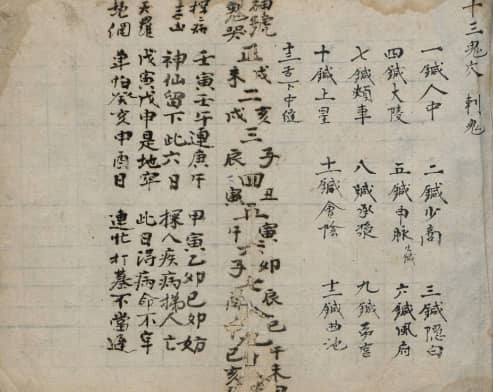 十三鬼穴 刺鬼
一鍼人中 二鍼少商 三鍼隐白
四鍼大陵 五鍼申脉火鍼 六鍼風府
七鍼頰車 八鍼承漿 九鍼勞宮
十鍼上星 十一鍼會陰 十二鍼曲池
十三舌下中縫
神號 戌亥子丑寅卯辰巳午未
正二三四五六七八九
鬼哭 未戌辰寅午子酉巳亥
探病 壬寅壬午連庚午 甲寅乙卯己卯妨
神仙留下此六日 探人疾病替人亡
天羅 戊寅戊申是地牢 此日得病命不牢
地網 单怕癸亥申酉日 連忙打墓不當遲